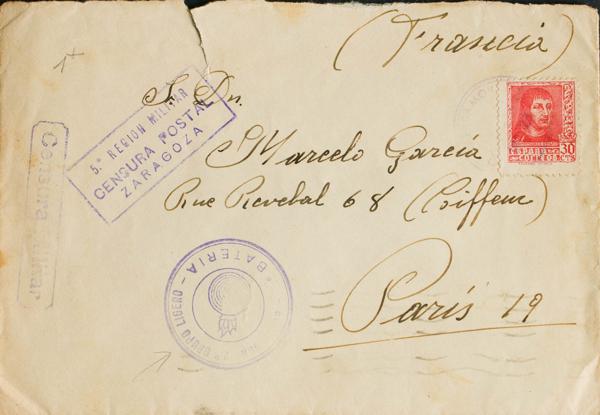 (Francia)
S. Dn.
Marcelo García
Rue Revebal 68 (Coiffeur)
París 19
5.ª REGION MILITAR
CENSURA POSTAL
ZARAGOZA
Censura Militar
BATERIA
GRUPO LIGERO
30
ESPAÑA
CORREOS